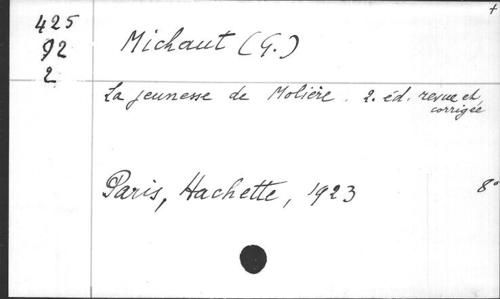 +
425
J2
2
Michaut (G.)
La jeunesse de Molière. 2. éd. revue et
corrigée
Paris, Hachette, 1923
8°